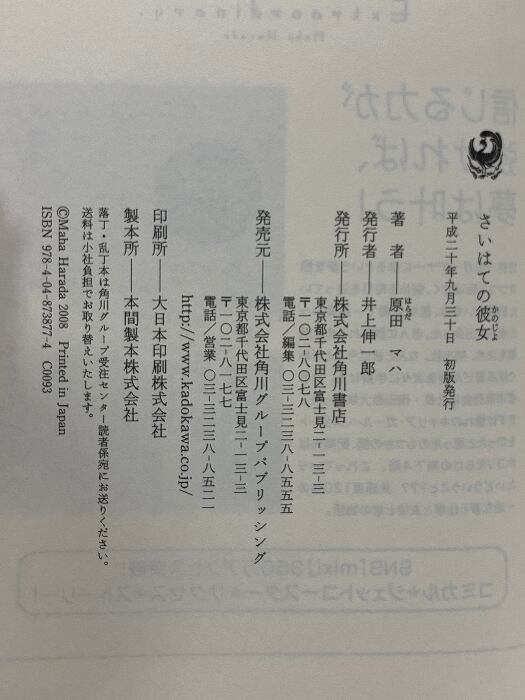 さいはての彼女
かのじょ
平成二十年九月三十日　初版発行
著　者――原田　マハ
はらだ
発行者　井上伸一郎
発行所――株式会社角川書店
東京都千代田区富士見二-一三-三
〒一〇二-八〇七八
電話／編集　〇三-三二三八-八五五五
発売元――株式会社角川グループパブリッシング
東京都千代田区富士見二-一三-三
〒一〇二-八一七七
電話／営業　〇三-三二三八-八五二一
http://www.kadokawa.co.jp/
印刷所――大日本印刷株式会社
製本所――本間製本株式会社
落丁・乱丁本は角川グループ受注センター読者係宛にお送りください。
送料は小社負担でお取り替えいたします。
©Maha Harada 2008　Printed in Japan
ISBN 978-4-04-873877-4　C0093
Extraordinary.
Maha Harada
信じる力が
強ければ、
夢は叶う！